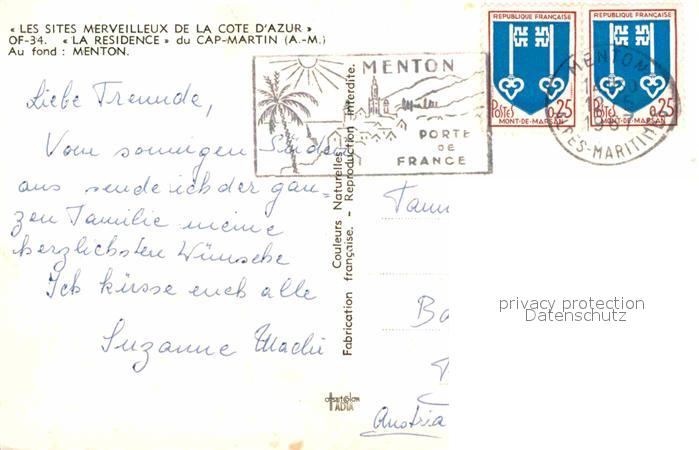 « LES SITES MERVEILLEUX DE LA COTE D'AZUR »
OF-34. « LA RESIDENCE » du CAP-MARTIN (A.-M.)
Au fond : MENTON.
Liebe Freunde,
Vom sonnigen Süden
aus sende ich der gan-
zen Familie meine
herzlichsten Wünsche
Ich küsse euch alle
Suzanne
Fabrication française. - Reproduction interdite.
Couleurs Naturelles
TADIA
MENTON
PORTE
DE
FRANCE
REPUBLIQUE FRANÇAISE
POSTES
0,25
MONT-DE-MARSAN
REPUBLIQUE FRANÇAISE
POSTES
0,25
MONT-DE-MARSAN
MENTON
1967
ALPES-MARITIMES
Austria
privacy protection
Datenschutz